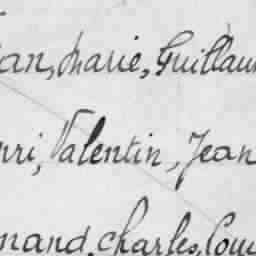 ean, marie, Guillau
nri, Valentin, Jean
nand, Charles, Lou